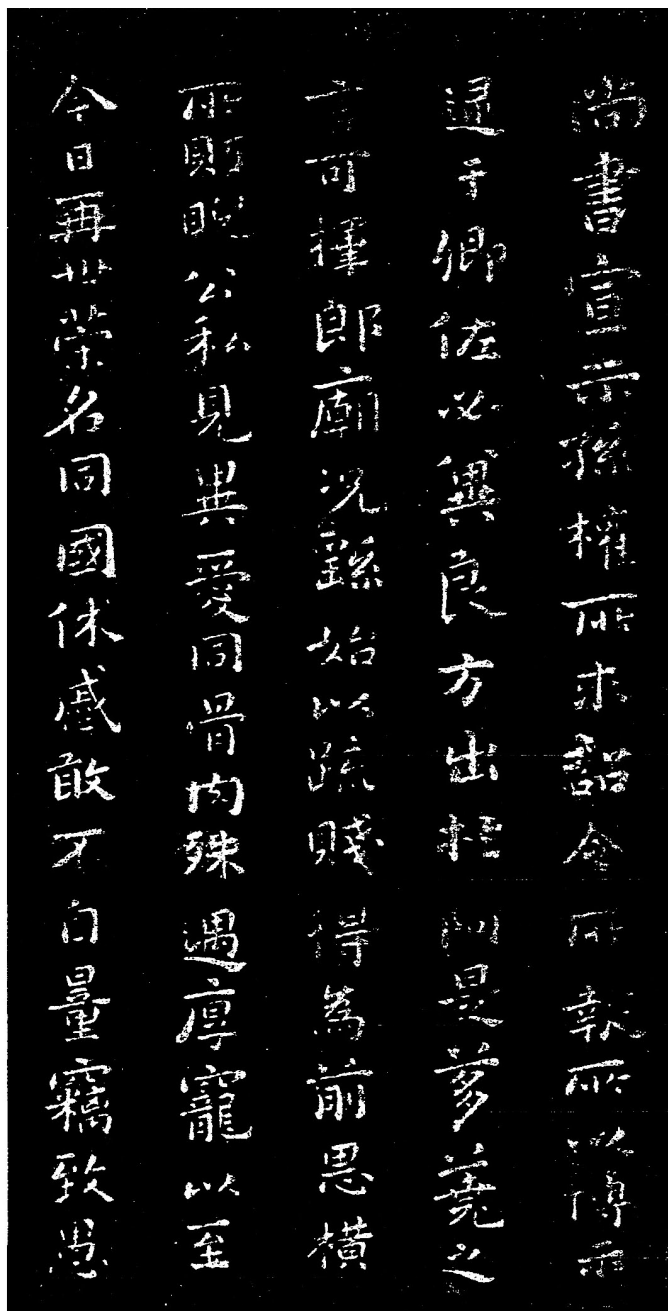 尚書宣示孫權所求詔令所報所以博示
逮于卿佐必冀良方出於阿是芻蕘之
言可擇郎廟況繇始以疏賤得為前恩橫
所盼睨公私見異愛同骨肉殊遇厚寵以至
今日再世榮名同國休慼敢不自量竊致愚